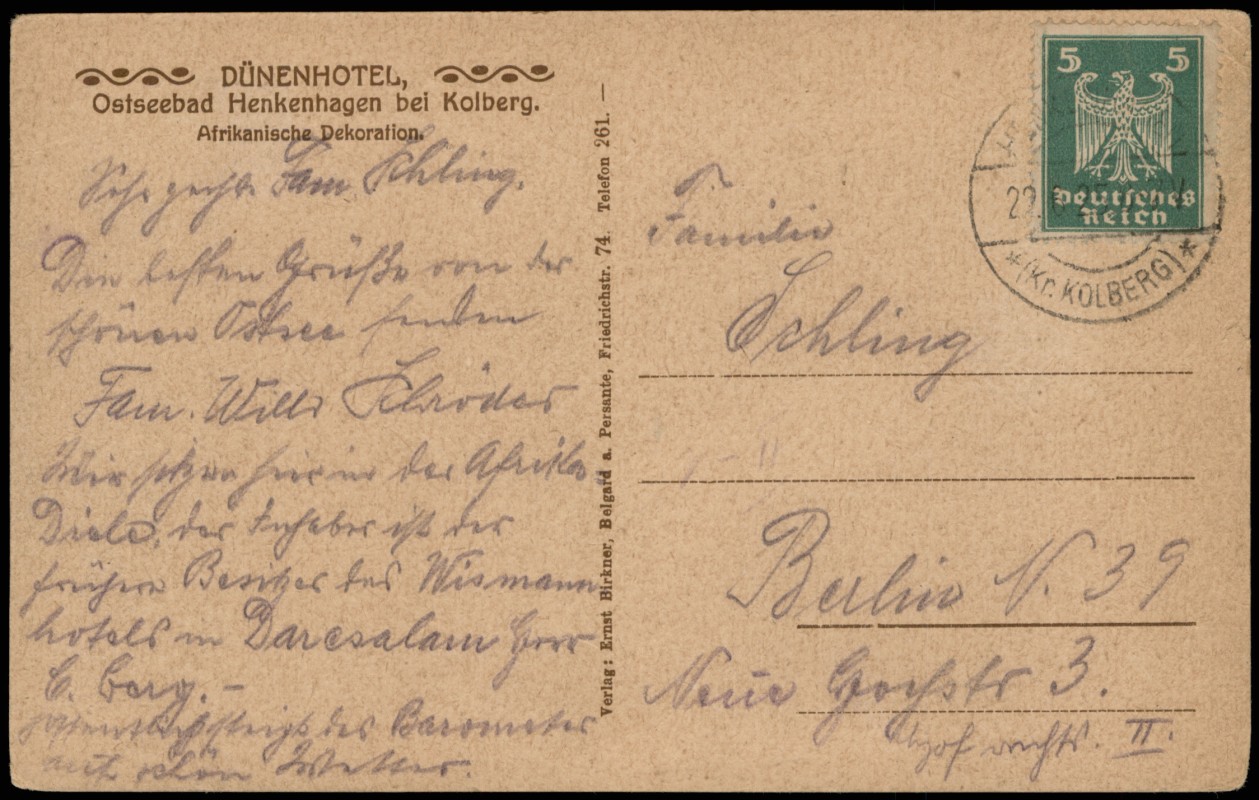 DÜNENHOTEL,
Ostseebad Henkenhagen bei Kolberg.
Afrikanische Dekoration.
Sehr geehrte Fam. Schling.
Die besten Grüße von der
schönen Ostsee senden
Fam. Willi Schröder
Wir sitzen hier in der Afrika
Diele, der Inhaber ist der
frühere Besitzer des Wismann
hotels in Daresalam Herr
C. Berg. –
Hoffentlich steigt das Barometer
auf schön Wetter.
Verlag: Ernst Birkner, Belgard a. Persante, Friedrichstr. 74. Telefon 261. —
5 5
Deutsches
Reich
22.6.25
*(Kr. KOLBERG)*
Familie
Schling
Berlin N. 39
Neue Hochstr 3.
Hof rechts. II.